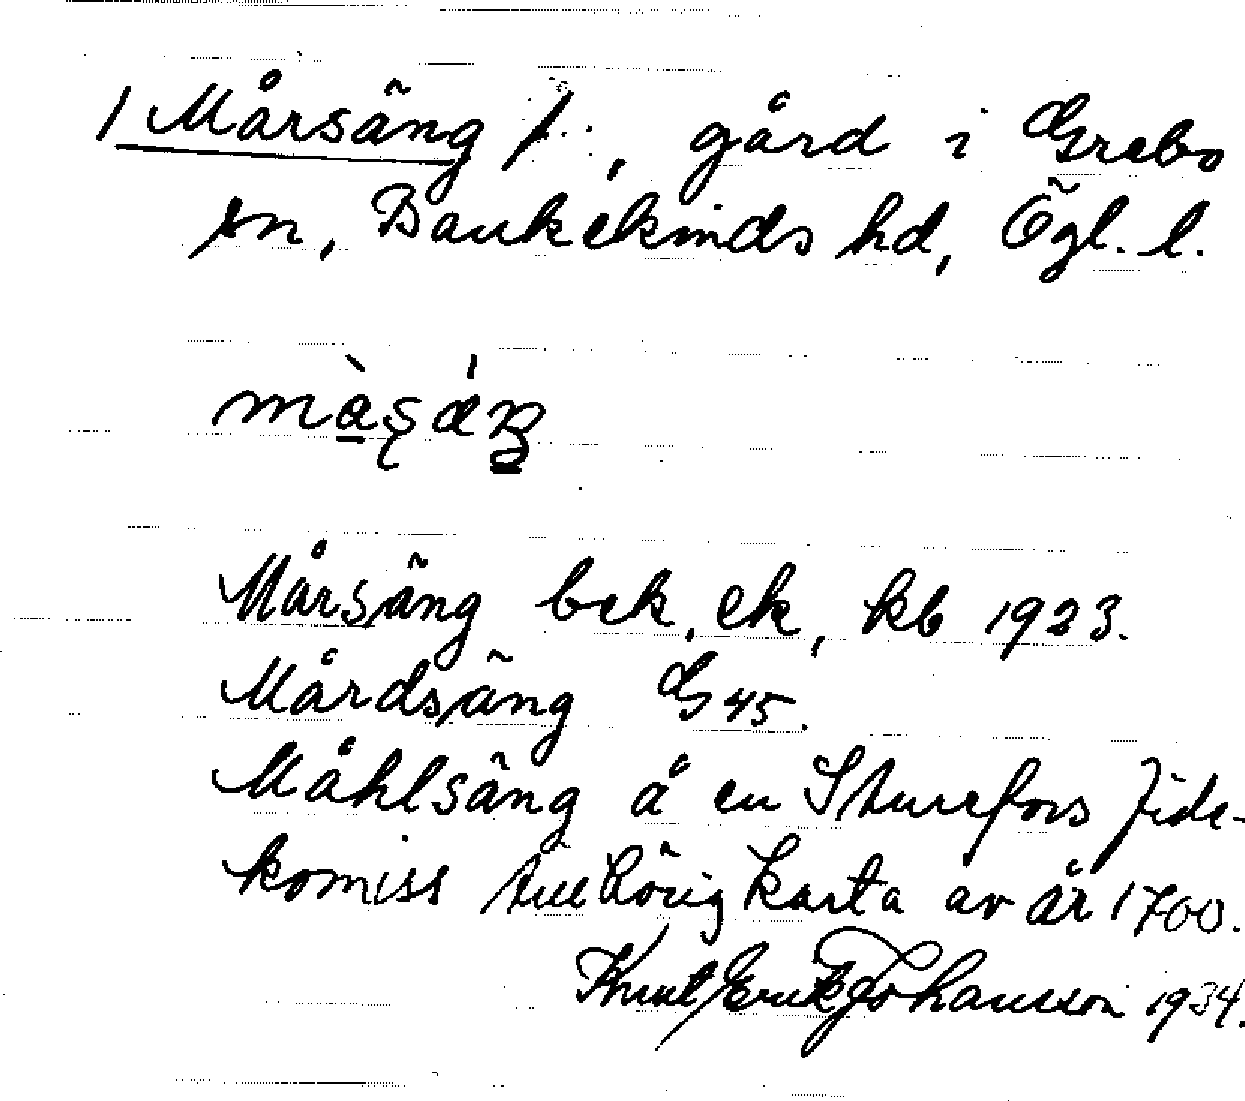 / Mårsäng /, gård i Grebo
sn, Bankekinds hd, Ögl. l.
Mårsäng bek, ek, kb 1923.
Mårdsäng G 45.
Måhlsäng å en Sturefors fide-
komiss tillhörig karta av år 1700.
Knut Erik Johansson 1934.